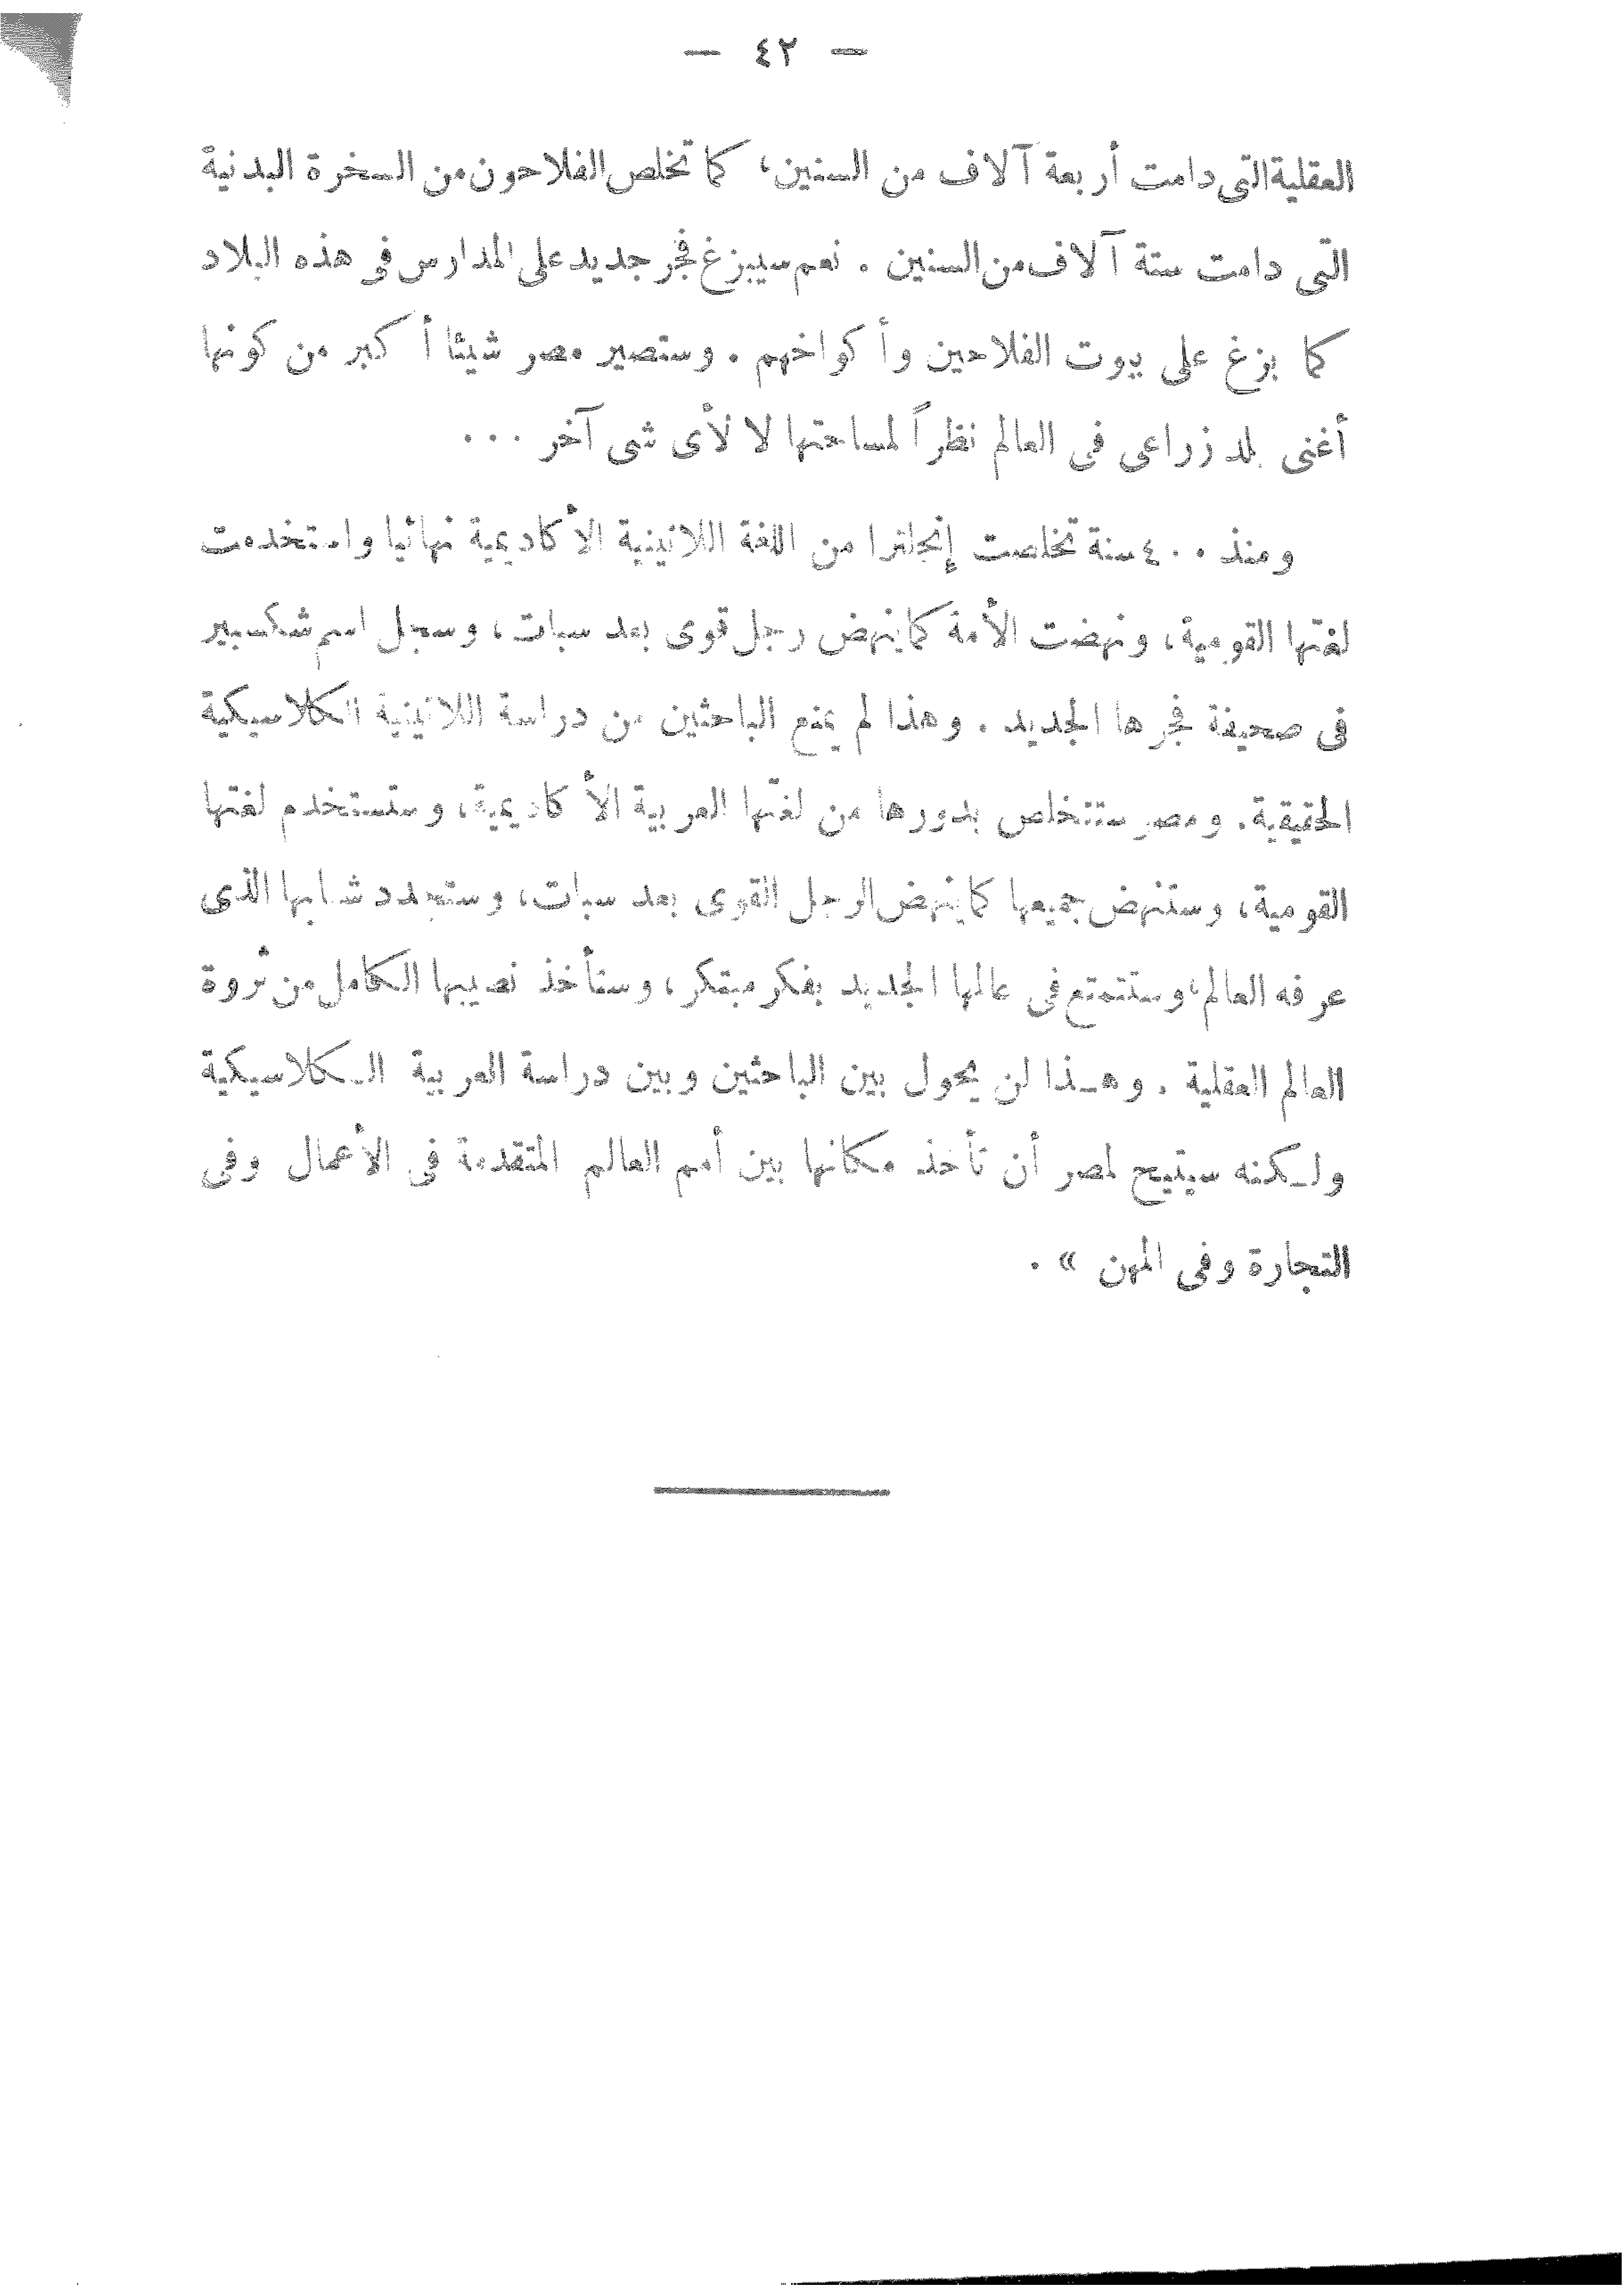 — ٤٢ —
العقلية التى دامت أربعة آلاف من السنين، كما تخلص الفلاحون من السخرة البدنية
التى دامت ستة آلاف من السنين . نعم سيبزغ فجر جديد على المدارس فى هذه البلاد
كما بزغ على بيوت الفلاحين وأكواخهم . وستصير مصر شيئا أكبر من كونها
أغنى بلد زراعى فى العالم نظراً لمساحتها لا لأى شى آخر ...
ومنذ ٤٠٠ سنة تخلصت إنجلترا من اللغة اللاتينية الأكاديمية نهائيا واستخدمت
لغتها القومية، ونهضت الأمة كما ينهض رجل قوى بعد سبات، وسجل اسم شكسبير
فى صحيفة فجرها الجديد . وهذا لم يمنع الباحثين من دراسة اللاتينية الكلاسيكية
الحقيقية. ومصر ستتخلص بدورها من لغتها العربية الأكاديمية، وستستخدم لغتها
القومية، وستنهض جميعها كما ينهض الرجل القوى بعد سبات، وستجدد شبابها الذى
عرفه العالم، وستتمتع فى عالمها الجديد بفكر مبتكر، وستأخذ نصيبها الكامل من ثروة
العالم العقلية . وهـذا لن يحول بين الباحثين وبين دراسة العربية الـكلاسيكية
ولـكنه سيتيح لمصر أن تأخذ مكانها بين أمم العالم المتقدمة فى الأعمال وفى
التجارة وفى المهن » .